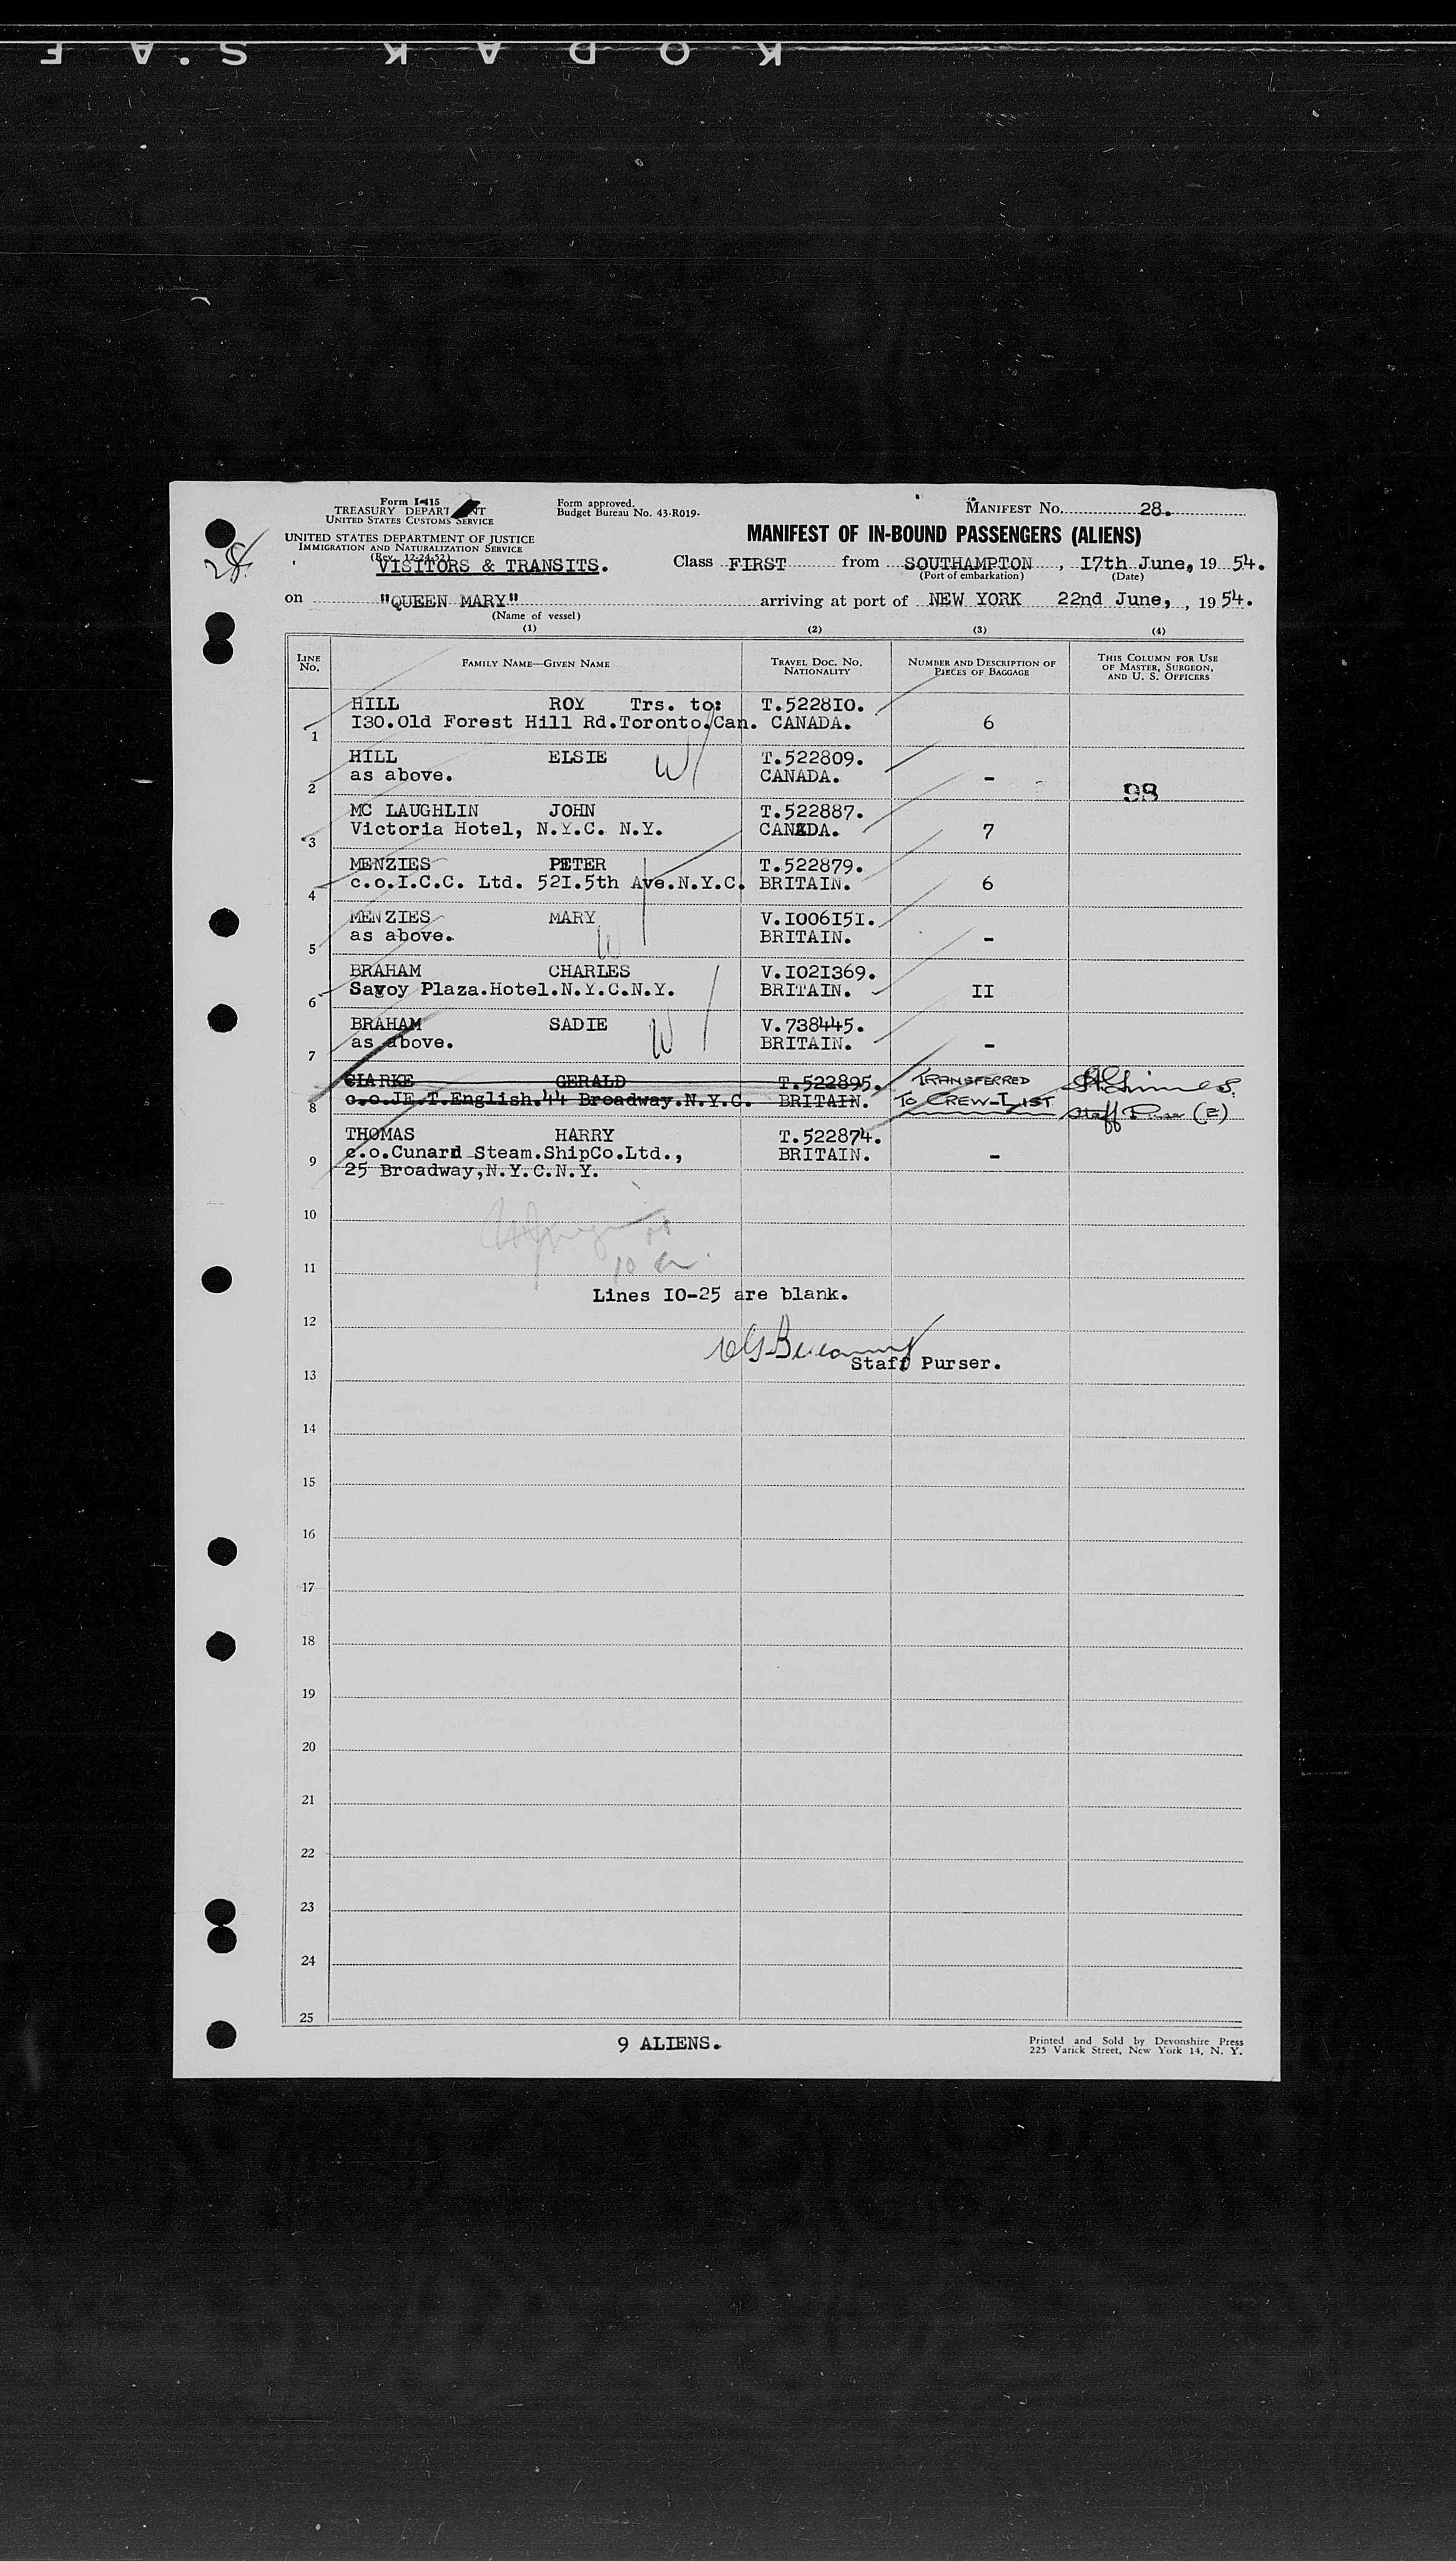 KODAK S.A F
Form I-415
TREASURY DEPART NT
UNITED STATES CUSTOMS SERVICE
UNITED STATES DEPARTMENT OF JUSTICE
IMMIGRATION AND NATURALIZATION SERVICE
(Rev. 12-24-52)
Form approved.
Budget Bureau No. 43-R019-
MANIFEST No. 28.
MANIFEST OF IN-BOUND PASSENGERS (ALIENS)
VISITORS & TRANSITS. Class FIRST from SOUTHAMPTON, 17th June, 19 54.
(Port of embarkation) (Date)
on "QUEEN MARY" arriving at port of NEW YORK 22nd June, , 19 54.
(Name of vessel)
(1) (2) (3) (4)
LINE No. FAMILY NAME—GIVEN NAME TRAVEL DOC. NO. NATIONALITY NUMBER AND DESCRIPTION OF PIECES OF BAGGAGE THIS COLUMN FOR USE OF MASTER, SURGEON, AND U. S. OFFICERS
HILL ROY Trs. to: T.5228I0.
1 I30.Old Forest Hill Rd.Toronto.Can. CANADA. 6
HILL ELSIE T.522809.
2 as above. CANADA. -
98
MC LAUGHLIN JOHN T.522887.
3 Victoria Hotel, N.Y.C. N.Y. CANADA. 7
MENZIES PETER T.522879.
4 c.o.I.C.C. Ltd. 52I.5th Ave.N.Y.C. BRITAIN. 6
MENZIES MARY V.I006I5I.
5 as above. BRITAIN. -
BRAHAM CHARLES V.I02I369.
6 Savoy Plaza.Hotel.N.Y.C.N.Y. BRITAIN. II
BRAHAM SADIE V.738445.
7 as above. BRITAIN. -
CLARKE GERALD T.522895. TRANSFERRED
8 c.o.JE.T.English.44 Broadway.N.Y.C. BRITAIN. TO CREW-LIST Staff Purser (E)
THOMAS HARRY T.522874.
9 c.o.Cunard Steam.ShipCo.Ltd., BRITAIN. -
25 Broadway,N.Y.C.N.Y.
10
11
Lines I0-25 are blank.
12
Staff Purser.
13
14
15
16
17
18
19
20
21
22
23
24
25
9 ALIENS.
Printed and Sold by Devonshire Press
225 Varick Street, New York 14, N. Y.